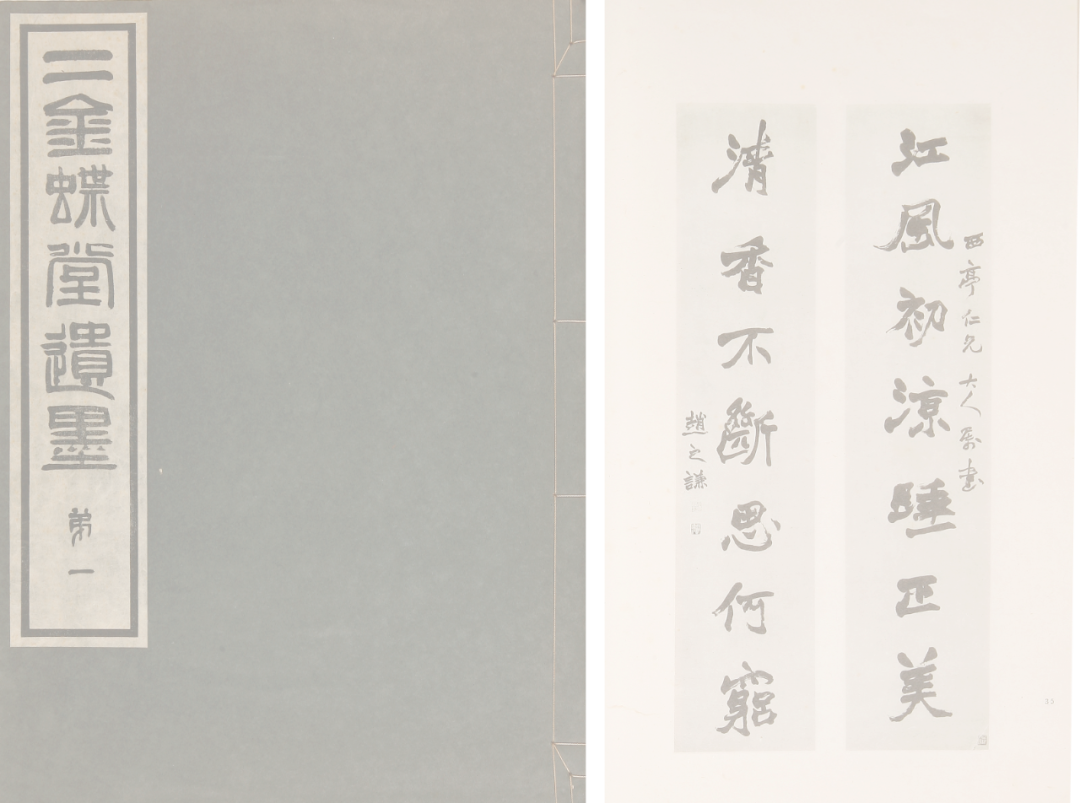 二金蝶堂遺墨
弟一
西亭仁兄大人属書
江風初涼睡正美
清香不斷思何窮
趙之謙